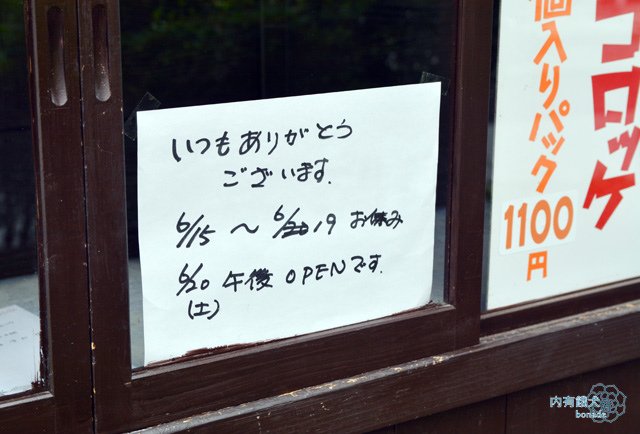 いつもありがとう
ございます.
6/15 〜 6/19 お休み
6/20 午後 OPENです.
(土)
コロッケ
個入りパック
1100
円
内有餓犬
bonade